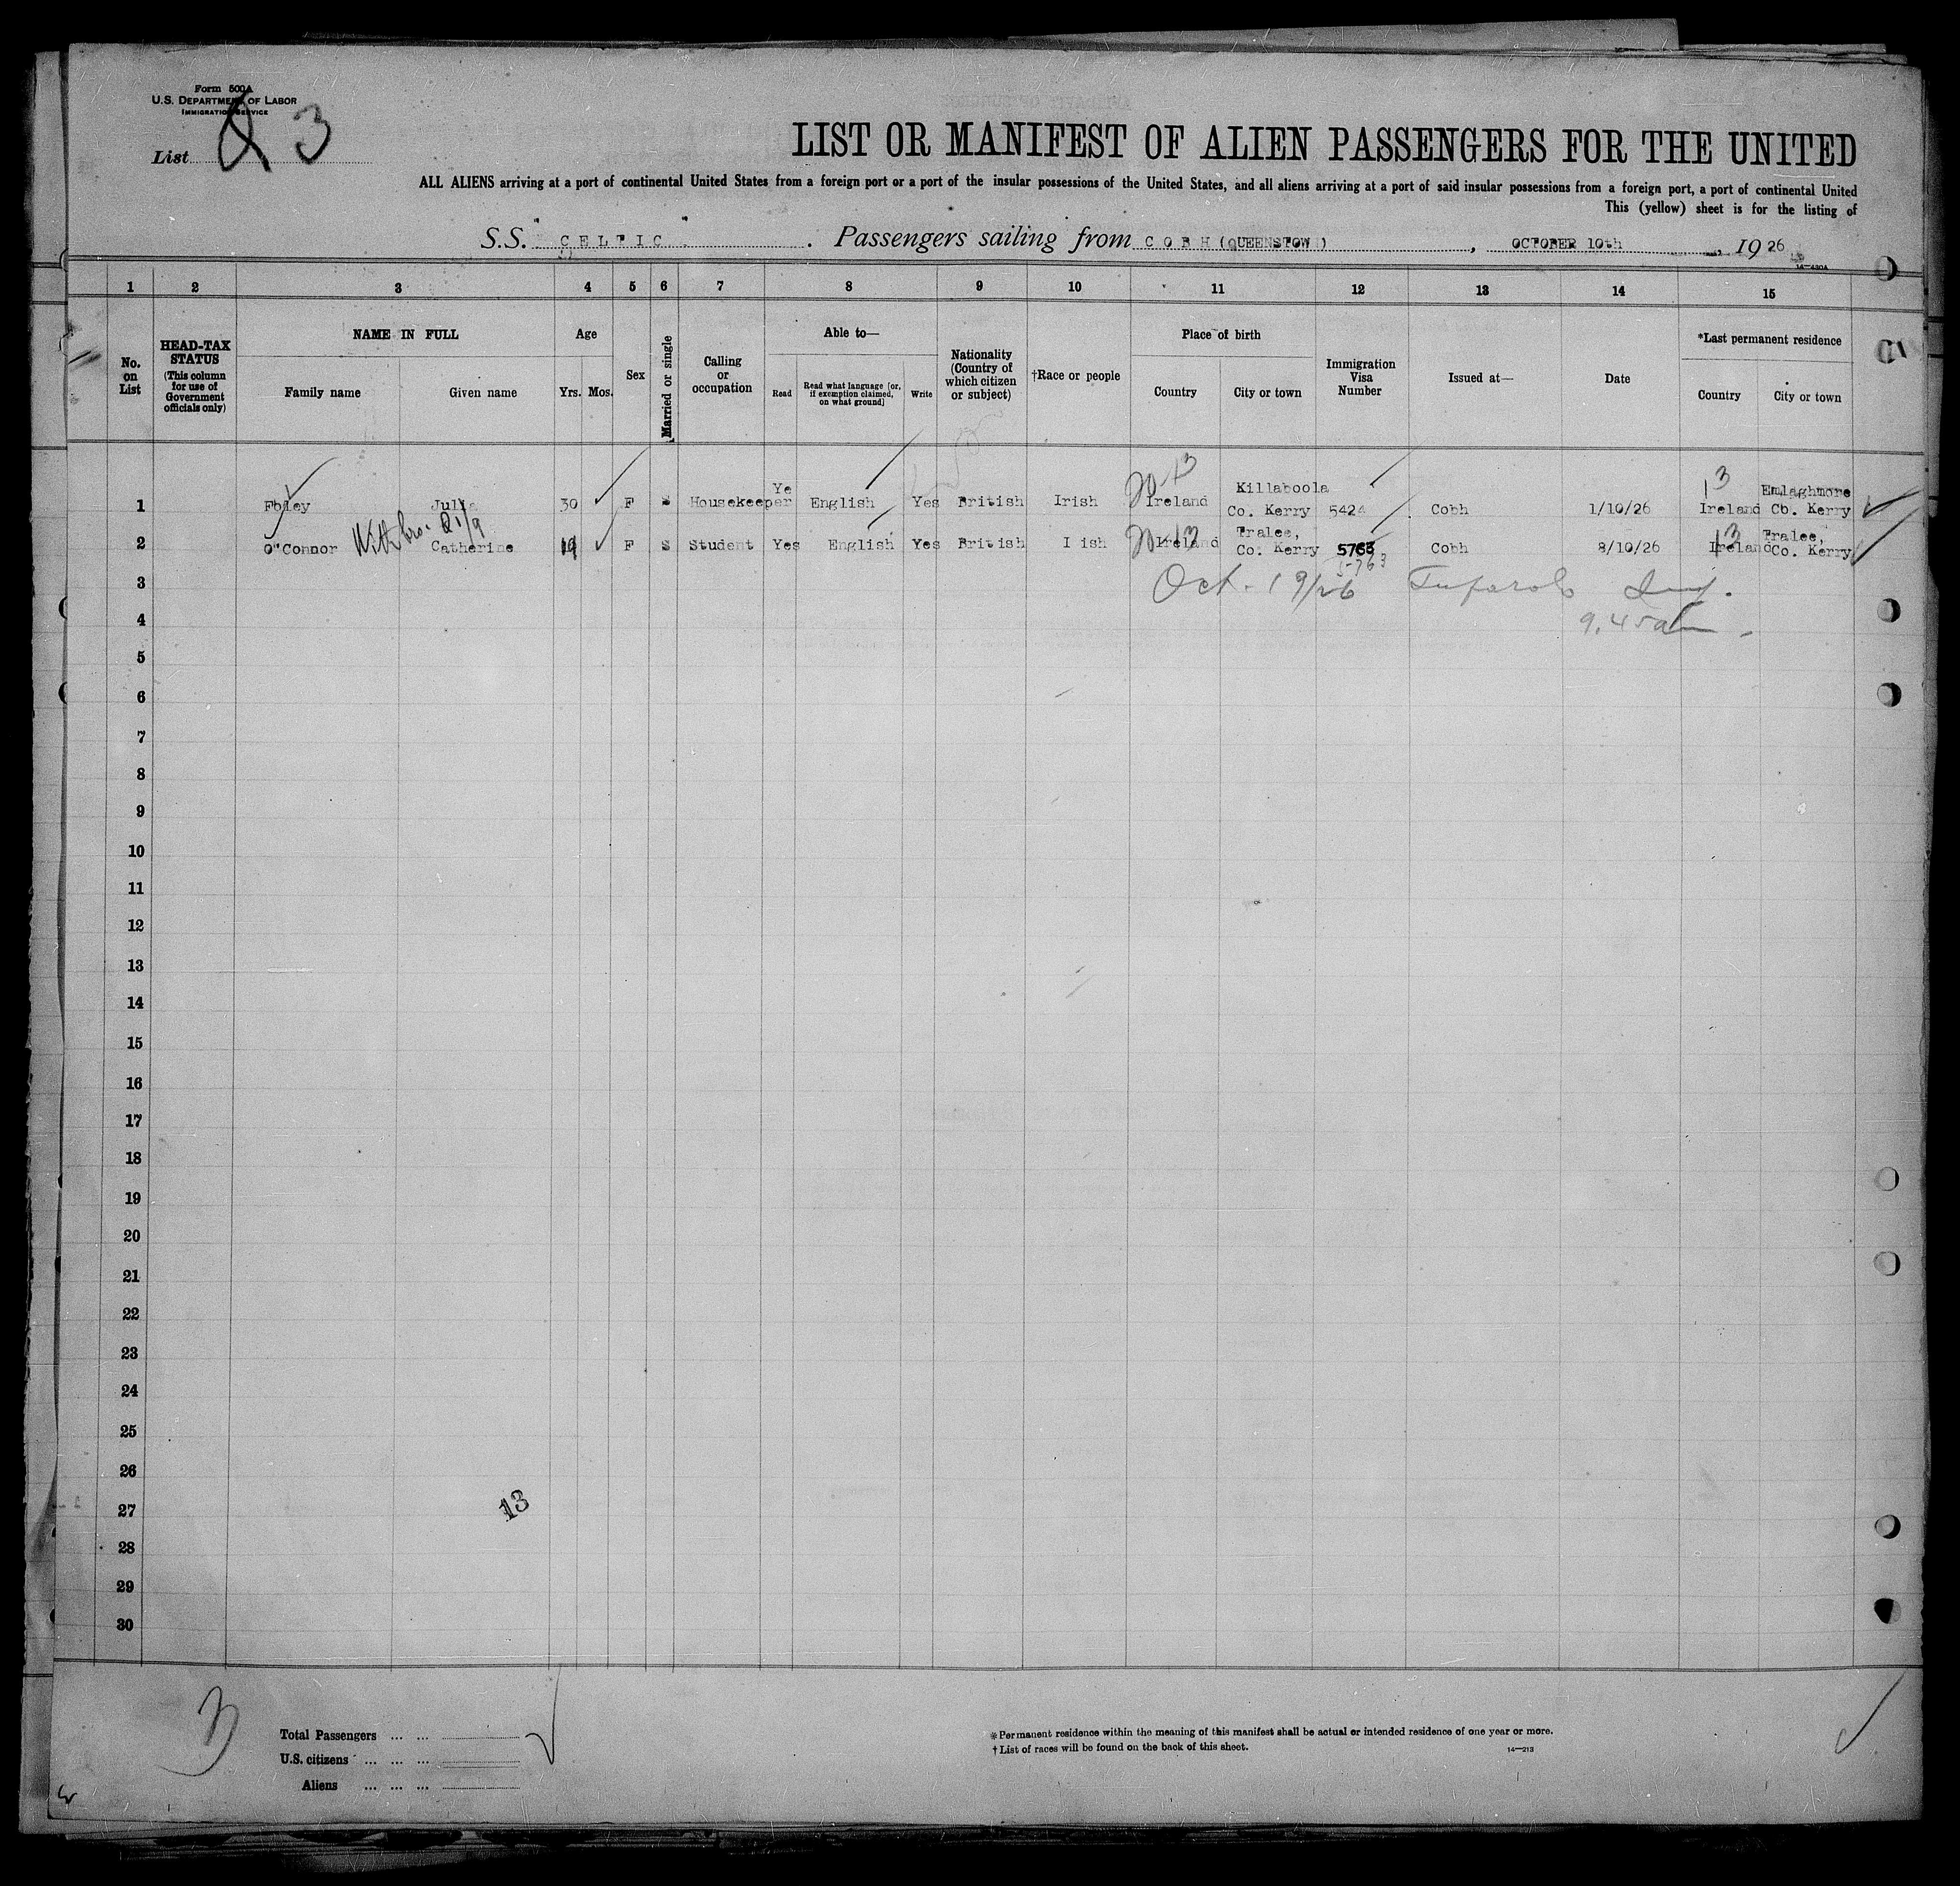 Form 500A
U.S. DEPARTMENT OF LABOR
IMMIGRATION SERVICE
List 3
LIST OR MANIFEST OF ALIEN PASSENGERS FOR THE UNITED
ALL ALIENS arriving at a port of continental United States from a foreign port or a port of the insular possessions of the United States, and all aliens arriving at a port of said insular possessions from a foreign port, a port of continental United
This (yellow) sheet is for the listing of
S.S. "CELTIC". Passengers sailing from COBH (QUEENSTOWN), OCTOBER 10th, 1926
14—430A
1 2 3 4 5 6 7 8 9 10 11 12 13 14 15
No. on List
HEAD-TAX STATUS (This column for use of Government officials only)
NAME IN FULL
Family name Given name
Age
Yrs. Mos.
Sex
Married or single
Calling or occupation
Able to—
Read Read what language [or, if exemption claimed, on what ground] Write
Nationality (Country of which citizen or subject)
†Race or people
Place of birth
Country City or town
Immigration Visa Number
Issued at—
Date
*Last permanent residence
Country City or town
1 Foley Julia 30 F S Housekeeper Ye English Yes British Irish Ireland Killaboola Co. Kerry 5424 Cobh 1/10/26 13 Ireland Emlaghmore Co. Kerry
With bro.
2 O"Connor Catherine 19 F S Student Yes English Yes British I ish Ireland Tralee, Co. Kerry 5763 Cobh 8/10/26 13 Ireland Tralee, Co. Kerry
5763
3 Oct. 19/26
4 9.45am
5
6
7
8
9
10
11
12
13
14
15
16
17
18
19
20
21
22
23
24
25
26
27
28
29
30
13
Total Passengers ... ...
U.S. citizens ... ... ...
Aliens ... ... ...
*Permanent residence within the meaning of this manifest shall be actual or intended residence of one year or more.
†List of races will be found on the back of this sheet.
14—213